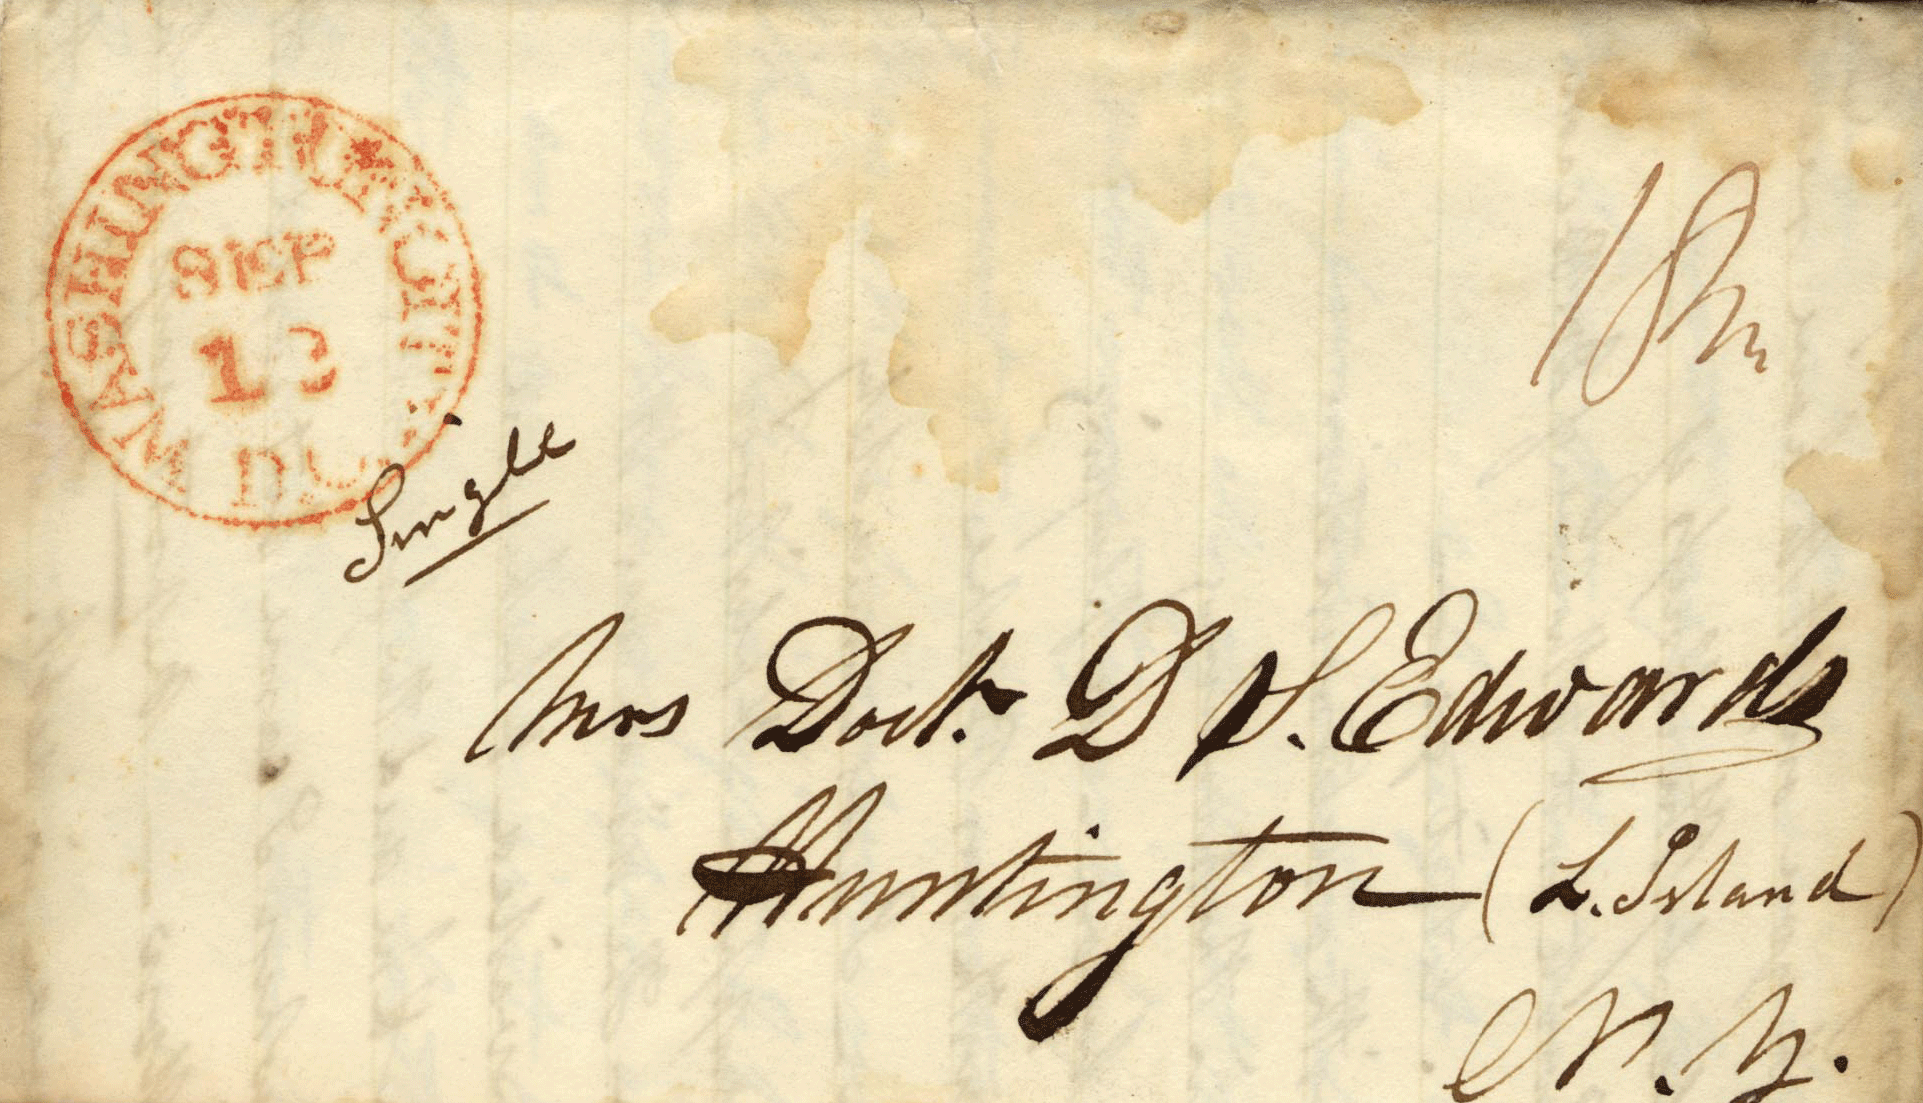 WASHINGTON CITY
SEP
D.C.
Single
Mrs Doct. D S. Edwards
Huntington (L. Island)
N. Y.